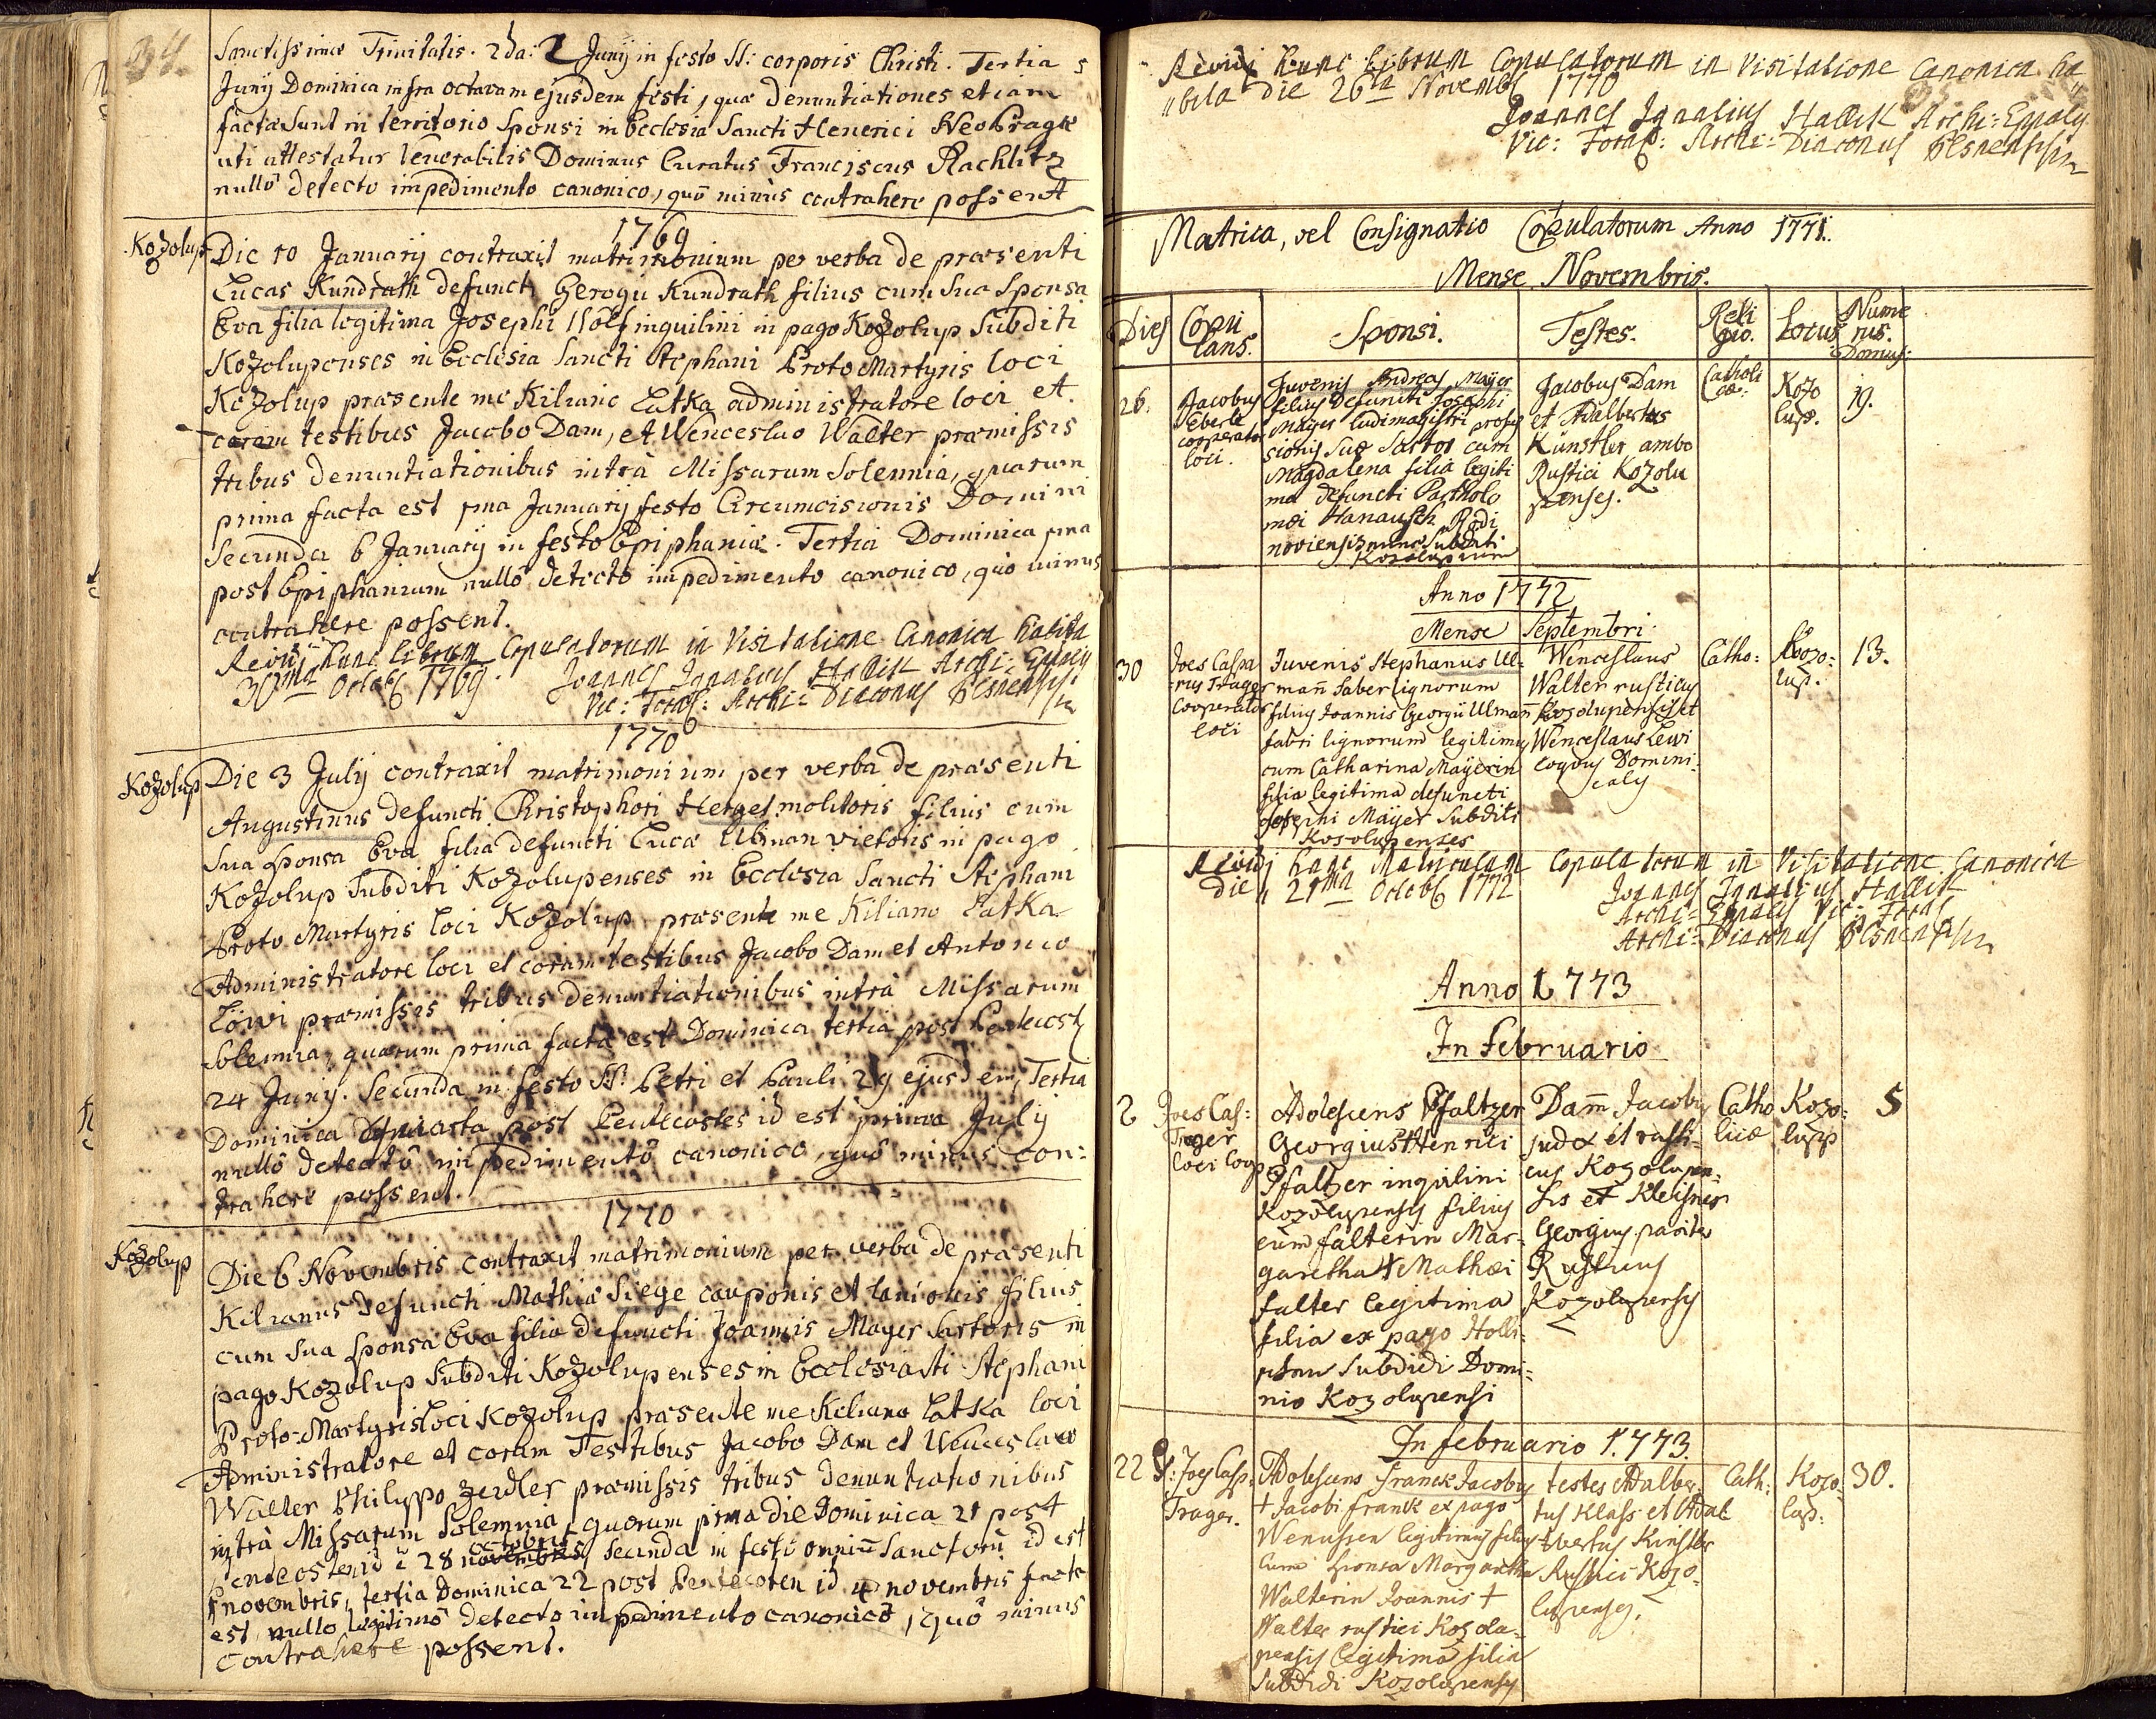 34.
Sanctissimae Trinitatis. 2da: 2 Junÿ in festo SS: corporis Christi. Tertia 5
Junÿ Dominica infra octavam ejusdem festi, quae denuntiationes etiam
factae sunt in territorio Sponsi in Ecclesia Sancti Henrici NeoPragae
uti attestatur Venerabilis Dominus Curatus Franciscus Rachlitz
nullô detecto impedimento canonico, quô minùs contrahere possent
1769
Kozolup
Die 10 Januarÿ contraxit matrimonium per verba de praesenti
Lucas Kundrath defuncti Gerogii Kundrath filius cum sua Sponsa
Eva filia legitima Josephi Wolf inquilini in pago Kozolup Subditi
Kozolupenses in Ecclesia Sancti Stephani Proto Martyris loci
Kozolup praesente me Kiliano Latka administratore loci et
coram testibus Jacobo Dam, et Wenceslao Walter praemissis
tribus denuntiationibus intrà Missarum Solemnia, quarum
prima facta est 1ma Januarÿ festo Circumcisionis Domini
Secunda 6 Januarÿ in festo Epiphaniae. Tertia Dominica 1ma
post Epiphaniam nullô detecto impedimento canonico, quò minus
contrahere possent.
Revidi hunc librum Copulatorum in Visitatione Canonica habita
30ma Octob 1769. Joannes Ignatius Hallik Archi-Eppalis
Vic: Foras: Archi-Diaconus Plsnensis
1770
Kozolup
Die 3 Julÿ contraxit matrimonium per verba de praesenti
Augustinus defuncti Christophori Herget molitoris filius cum
Sua Sponsa Eva filia defuncti Lucae Ulman vietoris in pago
Kozolup Subditi Kozolupenses in Ecclesia Sancti Stephani
Proto Martyris loci Kozolup praesente me Kiliano Latka
Administratore loci et coram testibus Jacobo Dam et Antonio
Löwi praemissis tribus denuntiationibus intrà Missarum
Solemnia, quarum prima facta est Dominica tertia post Pentecost
24 Junÿ. Secunda in festo SS: Petri et Pauli 29 ejusdem, Tertia
Dominica quarta post Pentecostes id est prima Julÿ
nullô detectô impedimentô canonico, quô minus con:
trahere possent.
1770
Kozolup
Die 6 Novembris contraxit matrimonium per verba de praesenti
Kilianus defuncti Mathiae Siege cauponis et lanionis filius
cum Sua Sponsa Eva filia defuncti Joannis Mayer Sartoris in
pago Kozolup Subditi Kozolupenses in Ecclesia Sti Stephani
Proto-Martyris loci Kozolup praesente me Kiliano Latka loci
Administratore et coram Testibus Jacobo Dam et Wenceslao
Walter Philyppo Zeidler praemissis tribus denuntiationibus
intrà Missarum Solemnia, quorum prima die Dominica 21 post
octobris
penteosten id e 28 novembris, Secunda in festi omniu Sanctoru id est
1 novembris, tertia Dominica 22 post Pentecoten id 4 novembris facta
est nullo legitimô detecto impedimento canonicô, quô minus
contrahere possent.
Revidi hunc Librum Copulatorum in Visitatione Canonica ha
bita die 26ta Novemb 1770
Joannes Ignatius Hallik Archi-Eppalis
Vic: Foras: Archi-Diaconus Plsnensis
Matrica, vel Consignatio Copulatorum Anno 1771.
Mense Novembris.
Dies Copu lans. Sponsi. Testes. Reli gio. Locus Nume rus. Domus:
26. Jacobus Eberle cooperator loci.
Juvenis Andreas Mayer
filius Defuncti Josephi
Mayer ludimagistri profes
sionis suae Sartor cum
Magdalena filia legiti
ma defuncti Partholo
maei Hanausch Radi
noviensis nunc Subditi
Kozolupium
Jacobus Dam
et Adalbertus
Künstler ambo
Rustici Kozolu
penses.
Catholi cae:
Kozo lup.
19.
Anno 1772
Mense Septembri.
30
Joes Caspa
rus Trager
Cooperator
loci
Juvenis Stephanus Ul:
mañ faber lignorum
filius Joannis Georgii Ulmañ
fabri lignorum legitimus
cum Catharina Mayerin
filia legitima defuncti
Josephi Mayer Subditi
Kosolupenses
Wenceslaus
Walter rusticus
Kosolupensis et
Wenceslaus Lewi
coquus Domini:
calis
Catho:
Kozo: lup.
13.
Revidi hanc Matriculam Copulatorum in Visitatione Canonica
die 21ma Octob 1772 Joannes Ignatius Hallik
Archi-Eppalis Vic: Foras
Archi-Diaconus Plsnensis
Anno 1773
In Februario
2
Joes Cas:
Trager
loci Coop
Adolescens Pfaltzer
Georgius Henrici
Pfaltzer inquilini
Kozolupensis filius
cum falterin Mar-
garetha + Mathaei
falter legitima
filia ex pago Holli:
schau subdidi Domi:
nio Kozolupensi
Dam̃ Jacobus
judex et rusti-
cus Kozolupen-
sis et Kleisner
Georgius pariter
Rusticus
Kozolupensis
Catho licae
Kozo: lupp
5
In februario 1773.
22
P: Joes Casp:
Trager.
Adolescens Franck Jacobus
+ Jacobi franck ex pago
Wenussen legitimus filius
Cum Sponsa Margaretha
Walterin Joannis +
Walter rustici Kozola-
pensis legitima filia
Subdidi Kozolupensis
testes Adalber-
tus Klass et Adal-
bertus Kinstler
Rustici Kozo-
lupenses.
Cath:
Kozo- lup:
30.